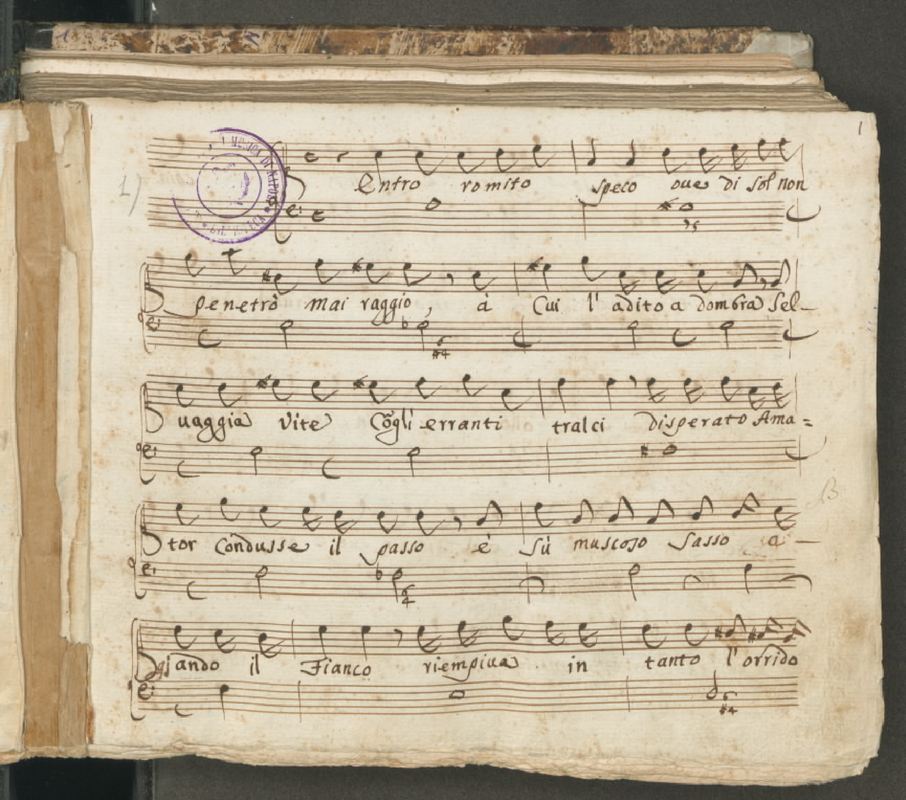 1
1)
Entro romito speco oue di sol non
penetrò mai raggio, à Cui l'adito a dombra Sel-
uaggia Vite Cõgli erranti tralci disperato Ama=
tor Condusse il passo è sù muscoso Sasso a-
giando il Fianco riempiua in tanto l'orrido